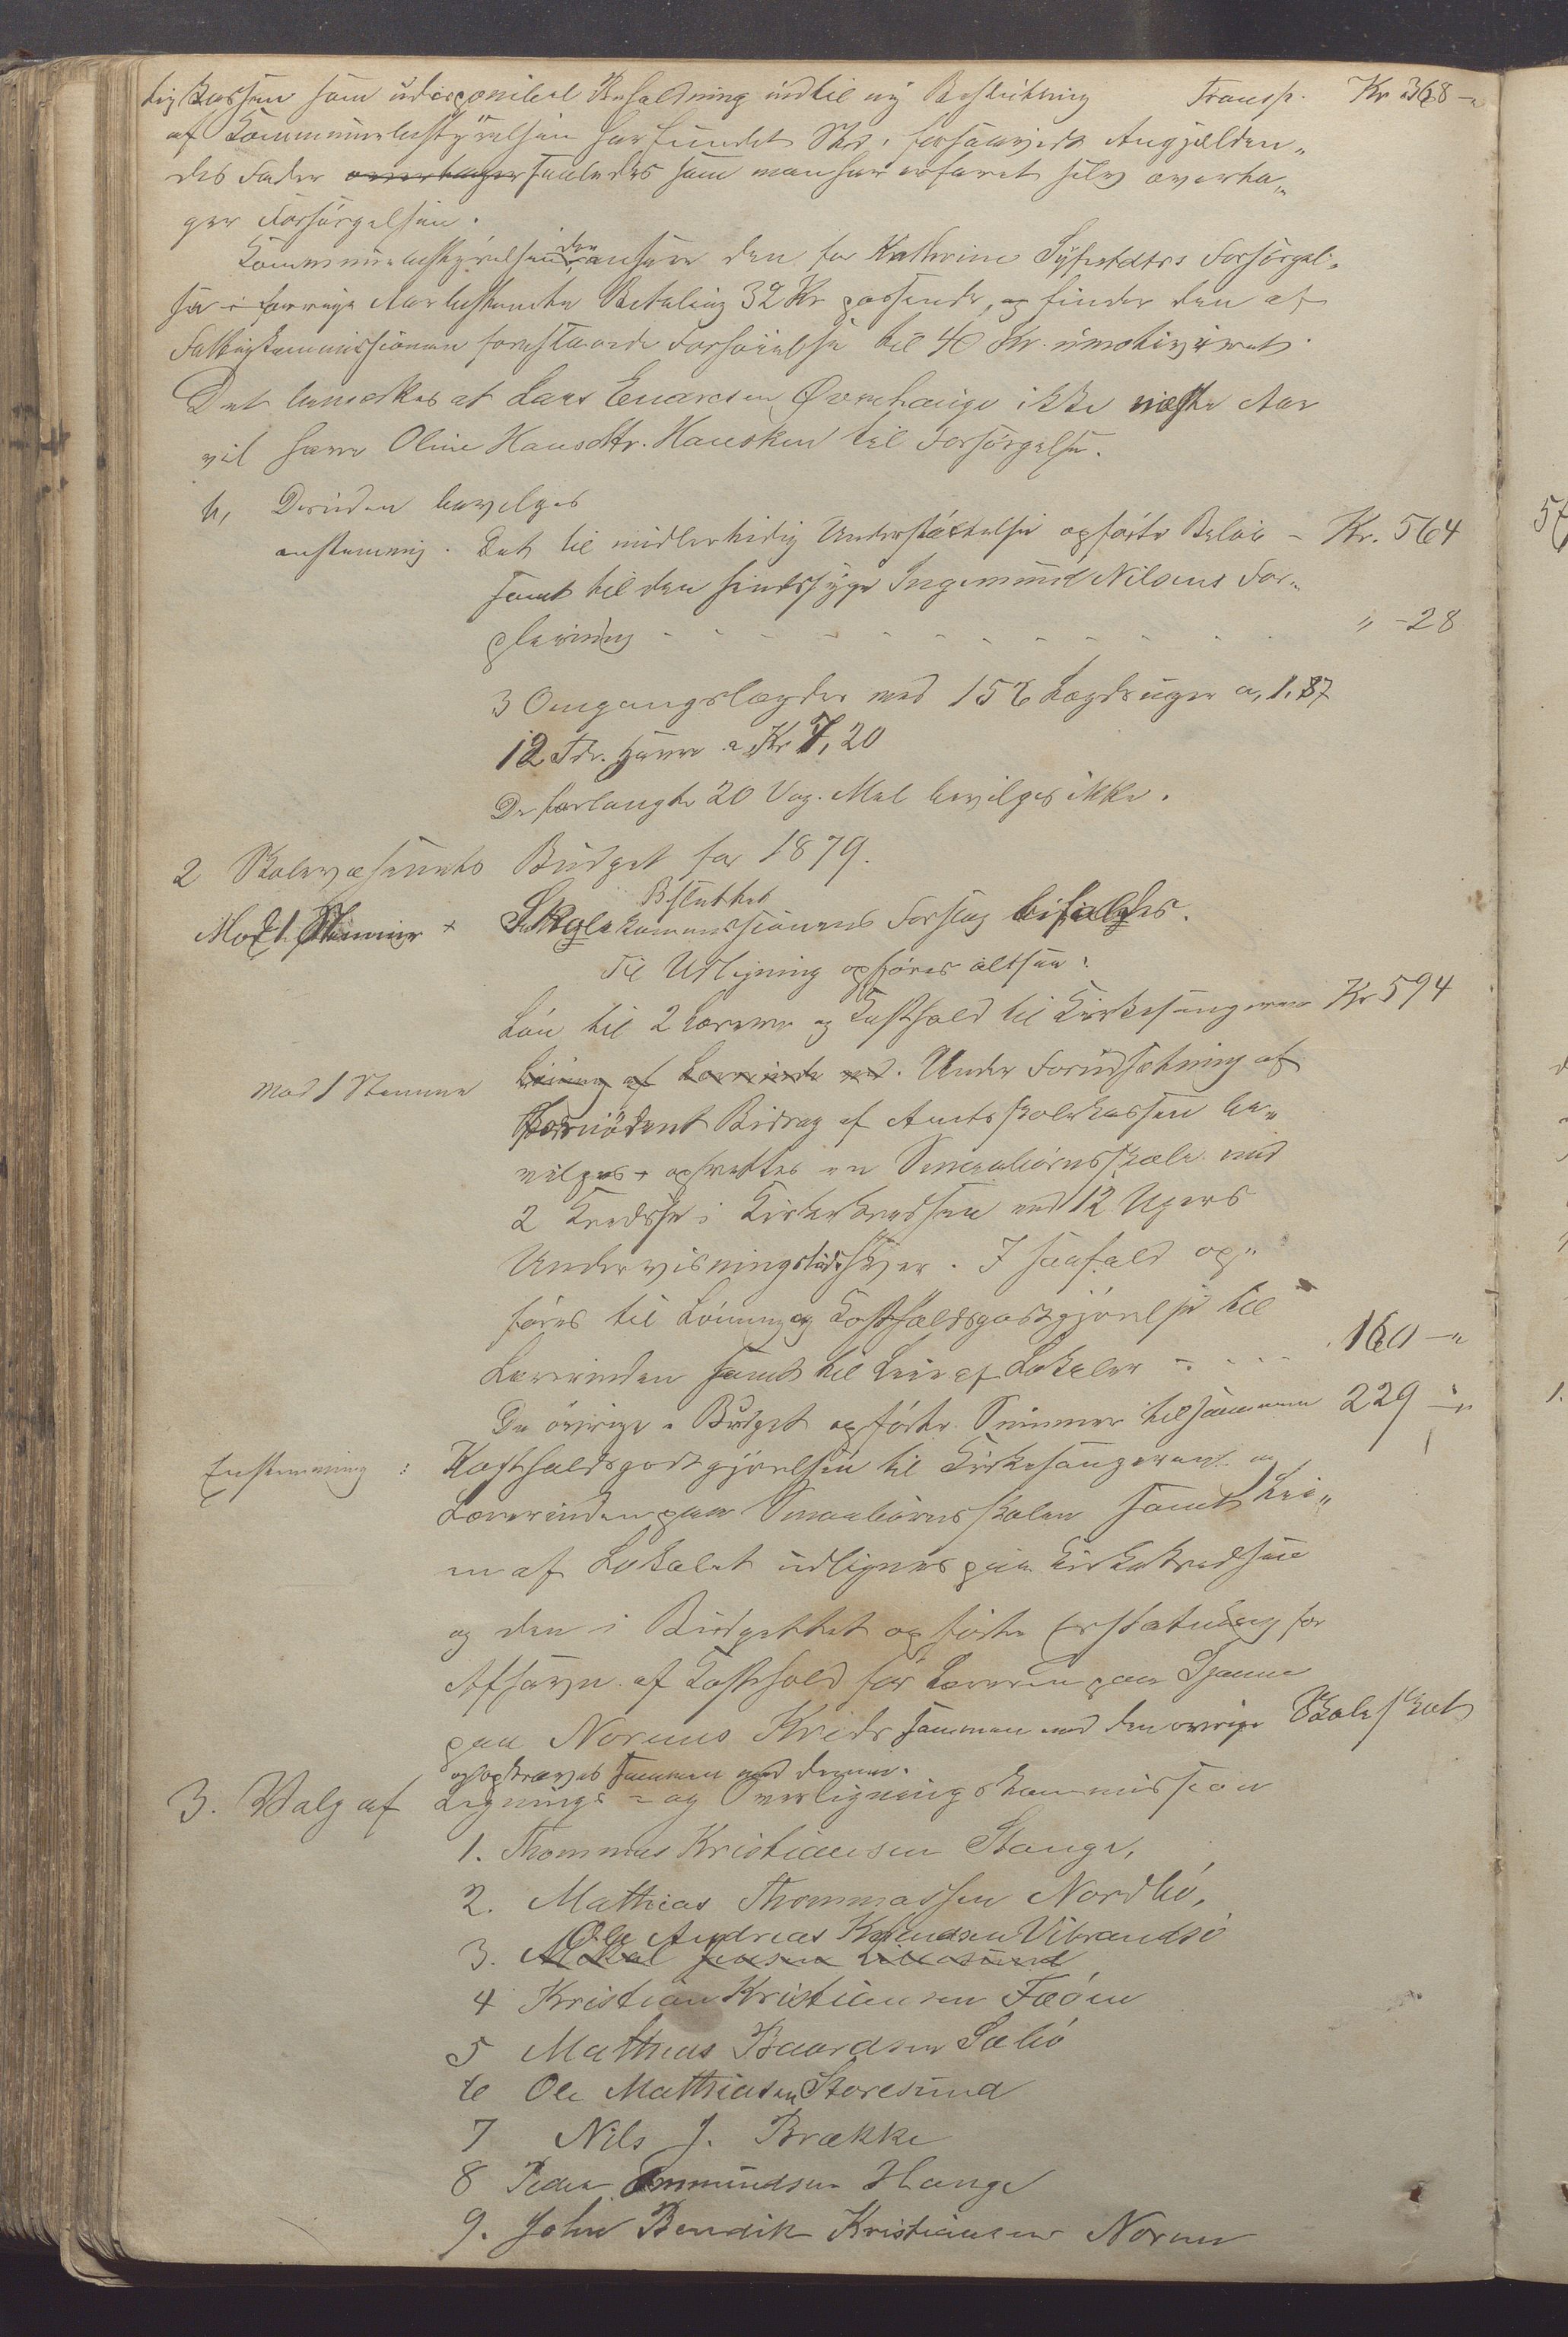 tigkassen som udisponibel Beholdning indtil ny Beslutning Transp. Kr 368 -"
af Kommunebestyrelsen har fundet Sted, forsaavidt Angjælden-
des Fader overtager saaledes som man har erfaret selv overta-
ger Forsørgelsen.
Kommunebestyrelsen anser den for Kathrine Syvertsdtrs Forsørgel-
se i forrige Aar bestemte Betaling 32 Kr passende, og finder den af
Fattigkommissionen foreslaaede Forhøielse til 40 Kr. umotiveret.
Det bemerkes at Lars Enarsen Øvrehauge ikke næste Aar
vil have Oline Hansdtr. Hausken til Forsørgelse.
h, Desuden bevilges
enstemmig. Det til midlertidig Understøttelse opførte Beløb - Kr. 564
samt til den sindssyge Ingemund Nilsens For-
pleining - - - - - - - - - - " - 28
3 Omgangslægder med 156 Lægdsuger a, 1.87
12 Tdr. Havre a Kr 7,20
De forlangte 20 Vog. Mel bevilges ikke.
2 Skolevæsenets Budget for 1879.
Beslutted
Mod 1 Stemme + Skolekommissionens Forslag bifaldes.
Til Udligning opføres altsaa:
Løn til 2 Lærere og Kosthold til Kirkesangeren Kr 594
mod 1 Stemme Lønning af Lærerinde med. Under Forudsætning af
Fornødent Bidrag af Amtsskolekassen be-
vilges + oprettes en Smaabørnsskole med
2 Kredse i Kirkekredsen med 12 Ugers
Undervisningstid hver. I saafald op-
føres til Lønning og Kostholdsgodtgjørelse til
Lærerinden samt til Leie af Lokaler - . . . . 160 -"
De øvrige i Budget opførte Summer tilsammen 229 -"
Enstemmig: Kostholdsgodtgjørelsen til Kirkesangeren og
Lærerinden paa Smaabørnsskolen samt Lei-
en af Lokalet udlignes paa Kirkekredsen
og den i Budgettet opførte Erstatning for
Afsavn af Kosthold for Læreren paa
paa Normes Kreds sammen med den øvrige Skoleskat
og opkræves sammen med denne.
3. Valg af Lignings- og Overligningskommission
1. Thommas Kristiansen Stange,
2. Mathias Thommassen Nordbø,
Ole Andreas Knudsen Vibrandsø
3. Mikal Jensen Lillesund
4 Kristian Kristiansen Fæøen
5 Mathias Baardsen Sæbø
6 Ole Mathiasen Storesund
7 Nils J. Brække
8 Peder Ommundsen Hauge
9. John Bendik Kristiansen Normen